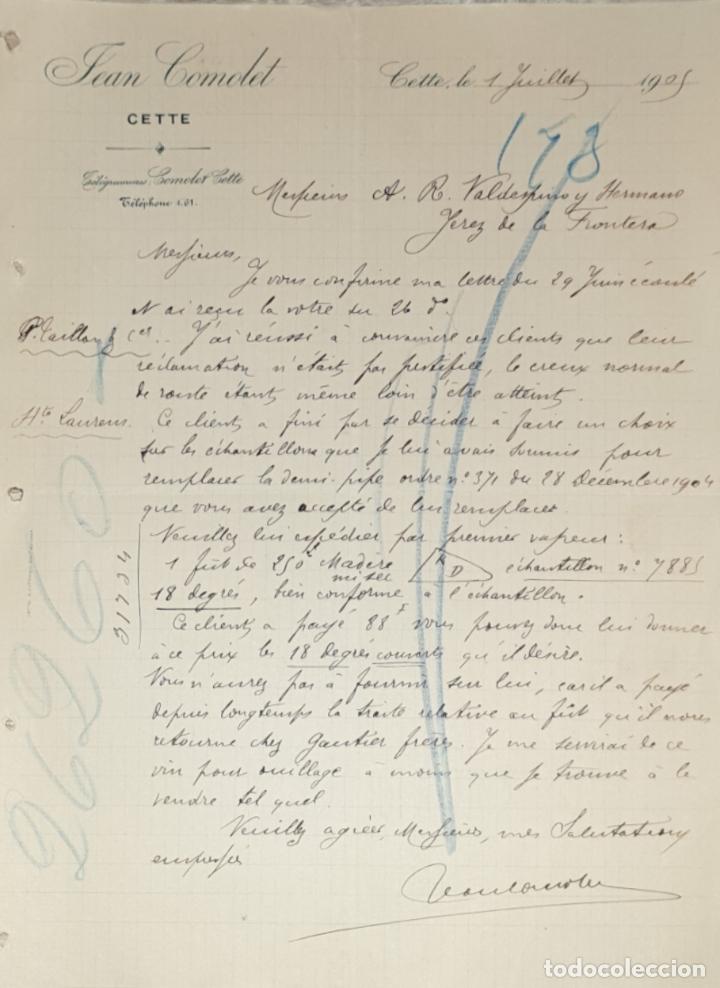 Jean Comolet
CETTE
Télégrammes, Comolet Cette
Téléphone 4.61.
Cette, le 1 Juillet 1905
178
Messieurs A. R. Valdespino y Hermano
Jerez de la Frontera
Messieurs,
Je vous confirme ma lettre du 29 Juin écoulé
N'ai reçu la votre du 26 do.
P. Taillan & Cer.. J'ai réussi à convaincre ces clients que leur
réclamation n'était pas justifiée, le creux normal
de route étant même loin d'être atteint.
Hte Laurens. Ce client a fini par se décider à faire un choix
sur les échantillons que je lui avais soumis pour
remplacer la demi-pipe ordre no. 371 du 28 Décembre 1904
que vous avez accepté de lui remplacer.
Veuillez lui expédier par premier vapeur:
1 fût de 250 Madère D échantillon no. 7885
18 degrés, bien conforme à l'échantillon.
Ce client a payé 88 f vous pouvez donc lui donner
à ce prix les 18 degrés couverts qu'il désire.
Vous n'aurez pas à fournir sur lui, car il a payé
depuis longtemps la traite relative au fût qu'il nous
retourne chez Gautier frères. Je me servirai de ce
vin pour ouillage à moins que je trouve à le
vendre tel quel.
Veuillez agréer, Messieurs, mes Salutations
empressées
Jean Comolet
31734
26260
todocoleccion
todocoleccion.net